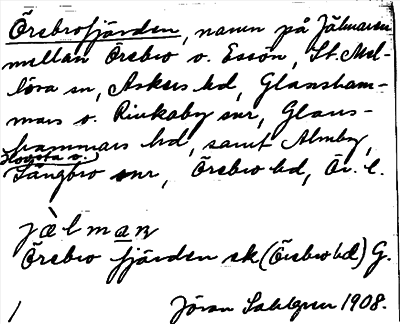 Örebrofjärden, namn på Jälmaren
mellan Örebro o. Essön, St. Mel-
lösa sn, Askers hd, Glansham-
mars o. Rinkaby snr, Glans-
hammars hd, samt Almby,
Hovsta o.
Längbro snr, Örebro hd, Ör. l.
jàlmaṇ
Örebro fjärden sk (Örebro hd) G.
Jöran Sahlgren 1908.